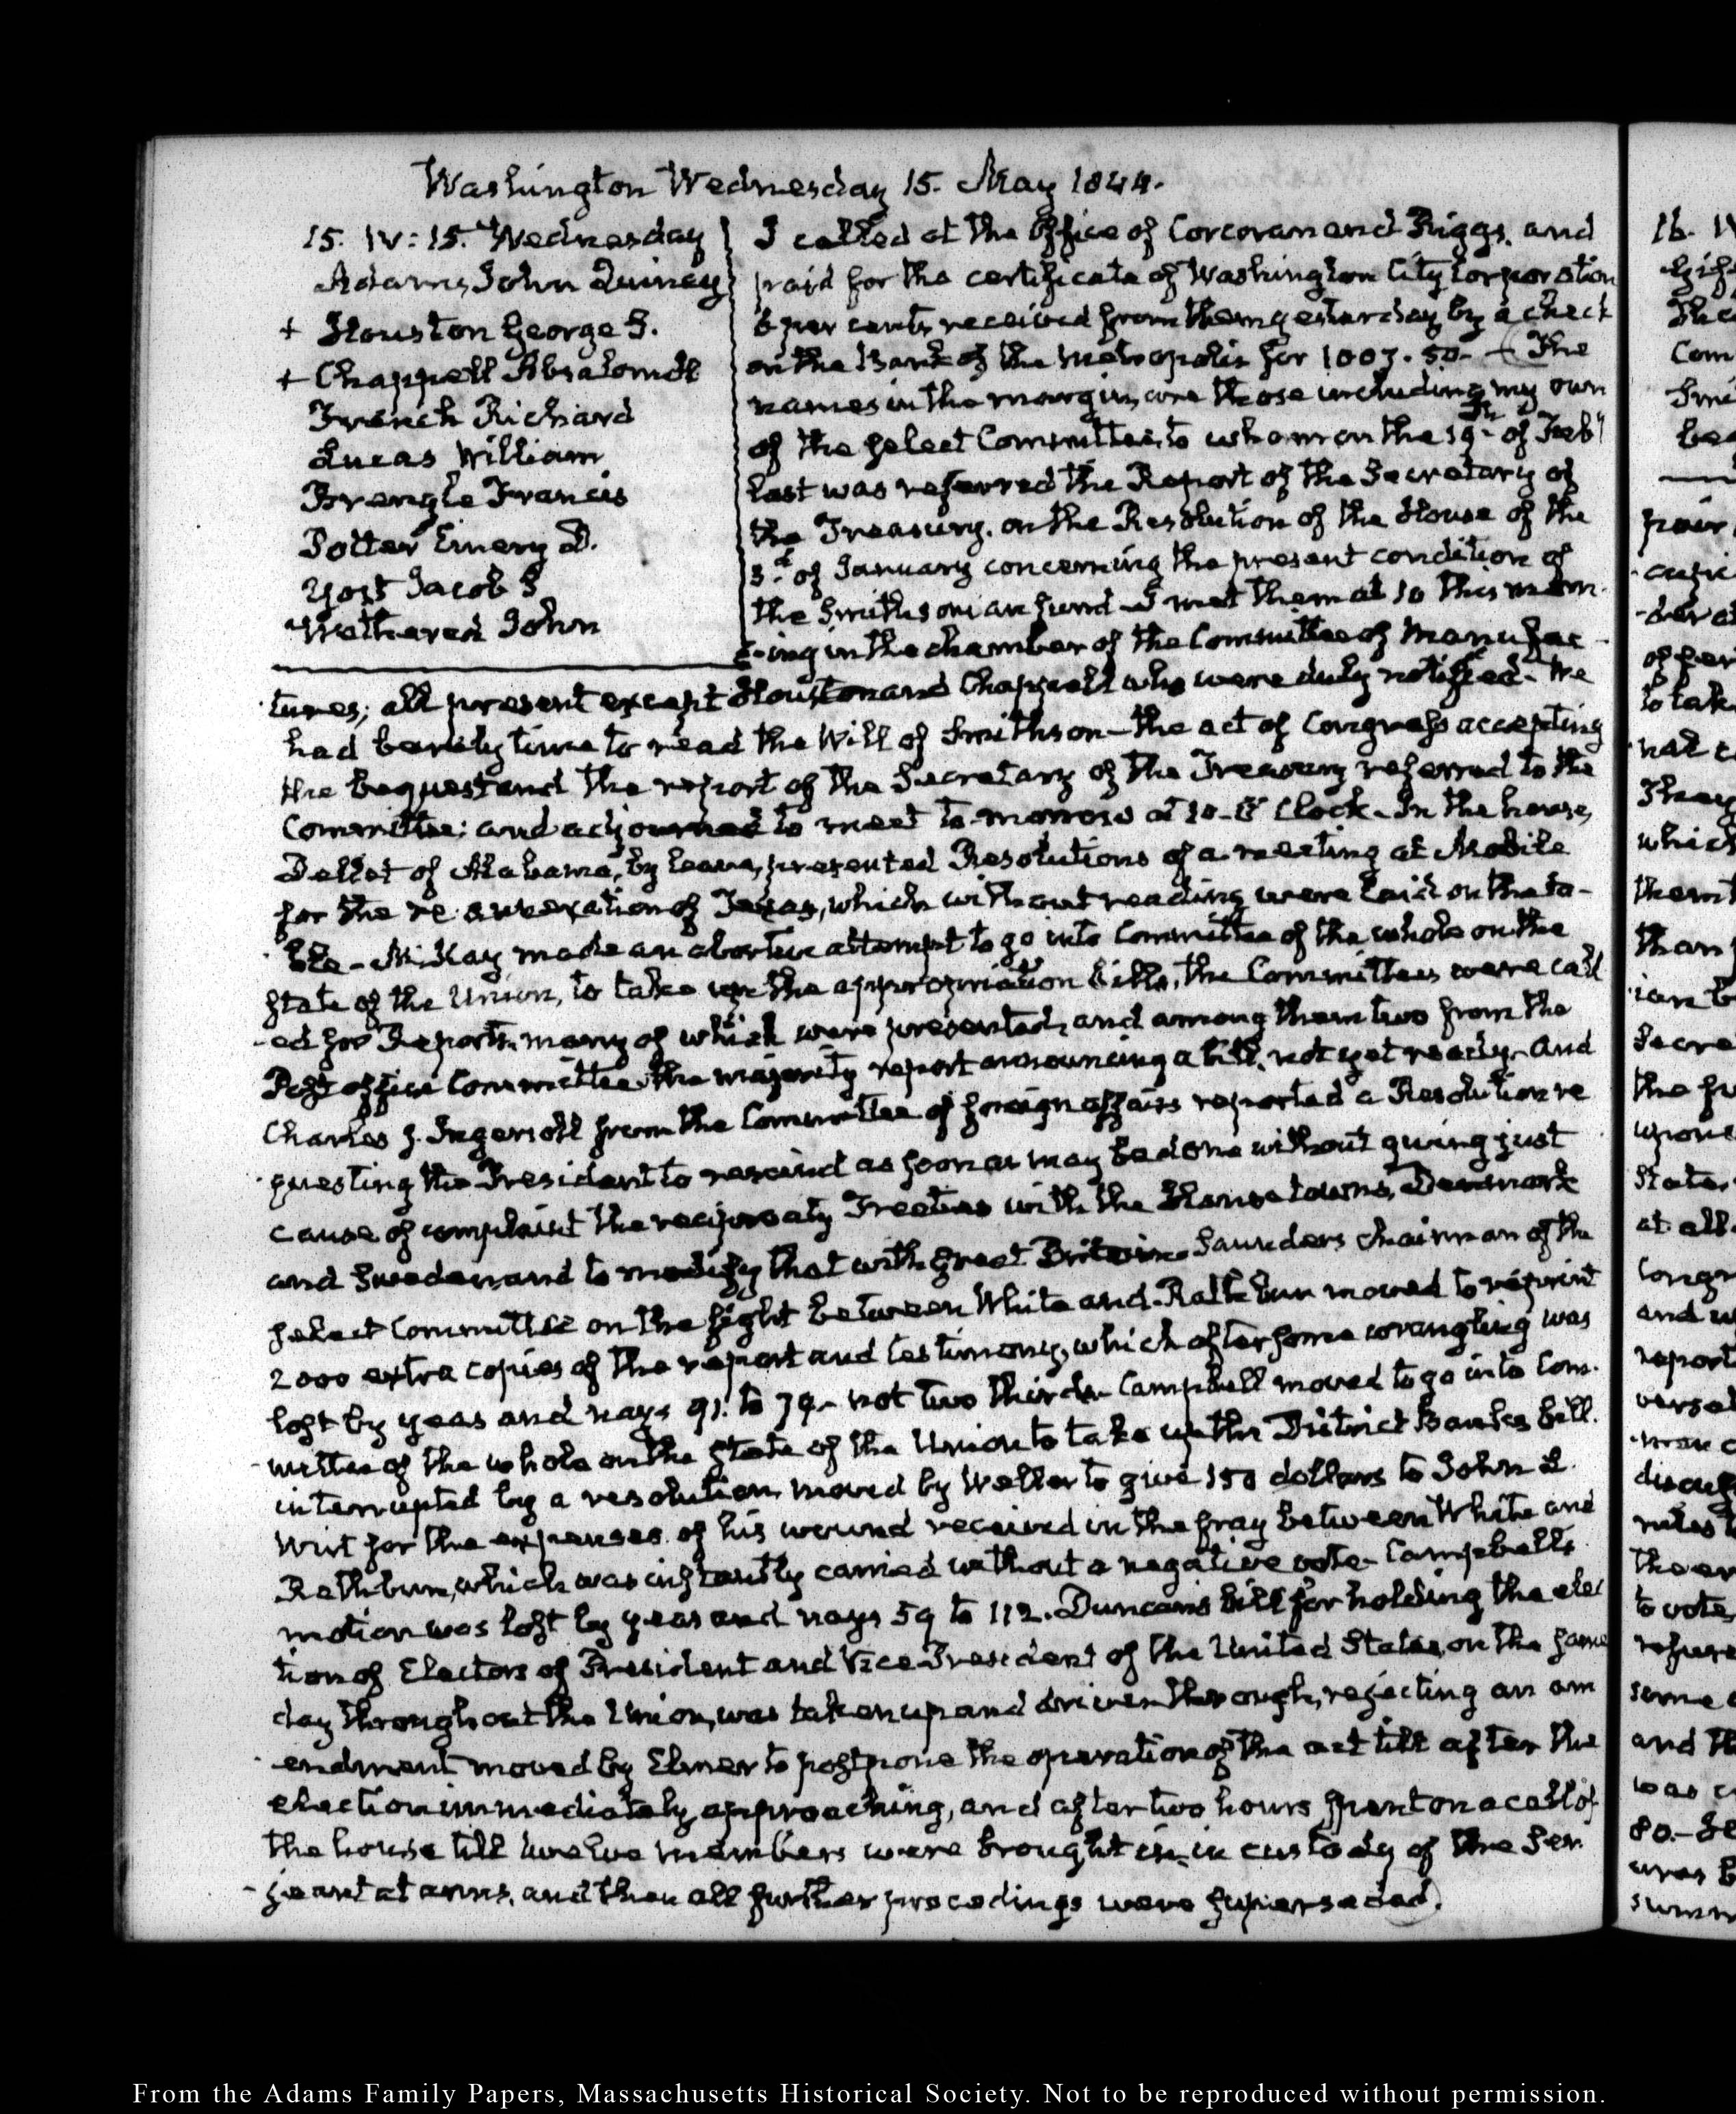 Washington Wednesday 15. May 1844.
15. IV: 15. Wednesday
Adams, John Quincy
+ Houston George S.
+ Chappell Absalom H
French Richard
Lucas William
Brengle Francis
Potter Emery D.
Yost Jacob S
Wethered John
I called at the Office of Corcoran and Riggs, and
paid for the certificate of Washington City Corporation
6 per cents, received from them yesterday by a check
on the Bank of the Metropolis for 1007.50. — (The
names in the margin, are those including my own
of the select Committee, to whom on the 19th of Feby
last was referred the Report of the Secretary of
the Treasury. on the Resolution of the House of the
3d of January concerning the present condition of
the Smithsonian fund — I met them at 10 this morn-
-ing in the chamber of the Committee of Manufac-
tures; all present except Houston and Chappell who were duly notified — We
had barely time to read the Will of Smithson — the act of Congress accepting
the bequest and the report of the Secretary of the Treasury referred to the
Committee; and adjourned to meet to-morrow at 10. O'Clock — In the house,
Dellet of Alabama, by leave, presented Resolutions of a meeting at Mobile
for the re-annexation of Texas, which without reading were laid on the ta-
ble — McKay made an abortive attempt to go into Committee of the whole on the
state of the Union, to take up the appropriation bills, the Committees were call
-ed for Reports. many of which were presented, and among them two from the
Post office Committee, the majority report announcing a bill, not yet ready — and
Charles J. Ingersoll from the Committee of foreign affairs reported a Resolution re
questing the President to rescind as soon as may be done without giving just
cause of complaint the reciprocity Treaties with the Hanse towns, Denmark
and Sweden and to modify that with great Britain — Saunders chairman of the
select Committee on the fight between White and Rathbun moved to reprint
2000 extra copies of the report and testimony, which after some wrangling was
lost by yeas and nays 91. to 79 — not two thirds — Campbell moved to go into Com-
mittee of the whole on the State of the Union to take up the District Banks bill.
interrupted by a resolution moved by Weller to give 150 dollars to John L.
Wirt for the expenses of his wound received in the fray between White and
Rathbun, which was instantly carried without a negative vote — Campbell's
motion was lost by yeas and nays 59 to 112. Duncan's bill for holding the elec
tion of Electors of President and Vice-President of the United States, on the same
day throughout the Union, was taken up and driven through, rejecting an am
endment moved by Elmer to postpone the operation of the act till after the
election immediately approaching, and after two hours spent on a call of
the house till twelve members were brought in, in custody of the Ser
-jeant at arms, and then all further procedings were superseded).
From the Adams Family Papers, Massachusetts Historical Society. Not to be reproduced without permission.